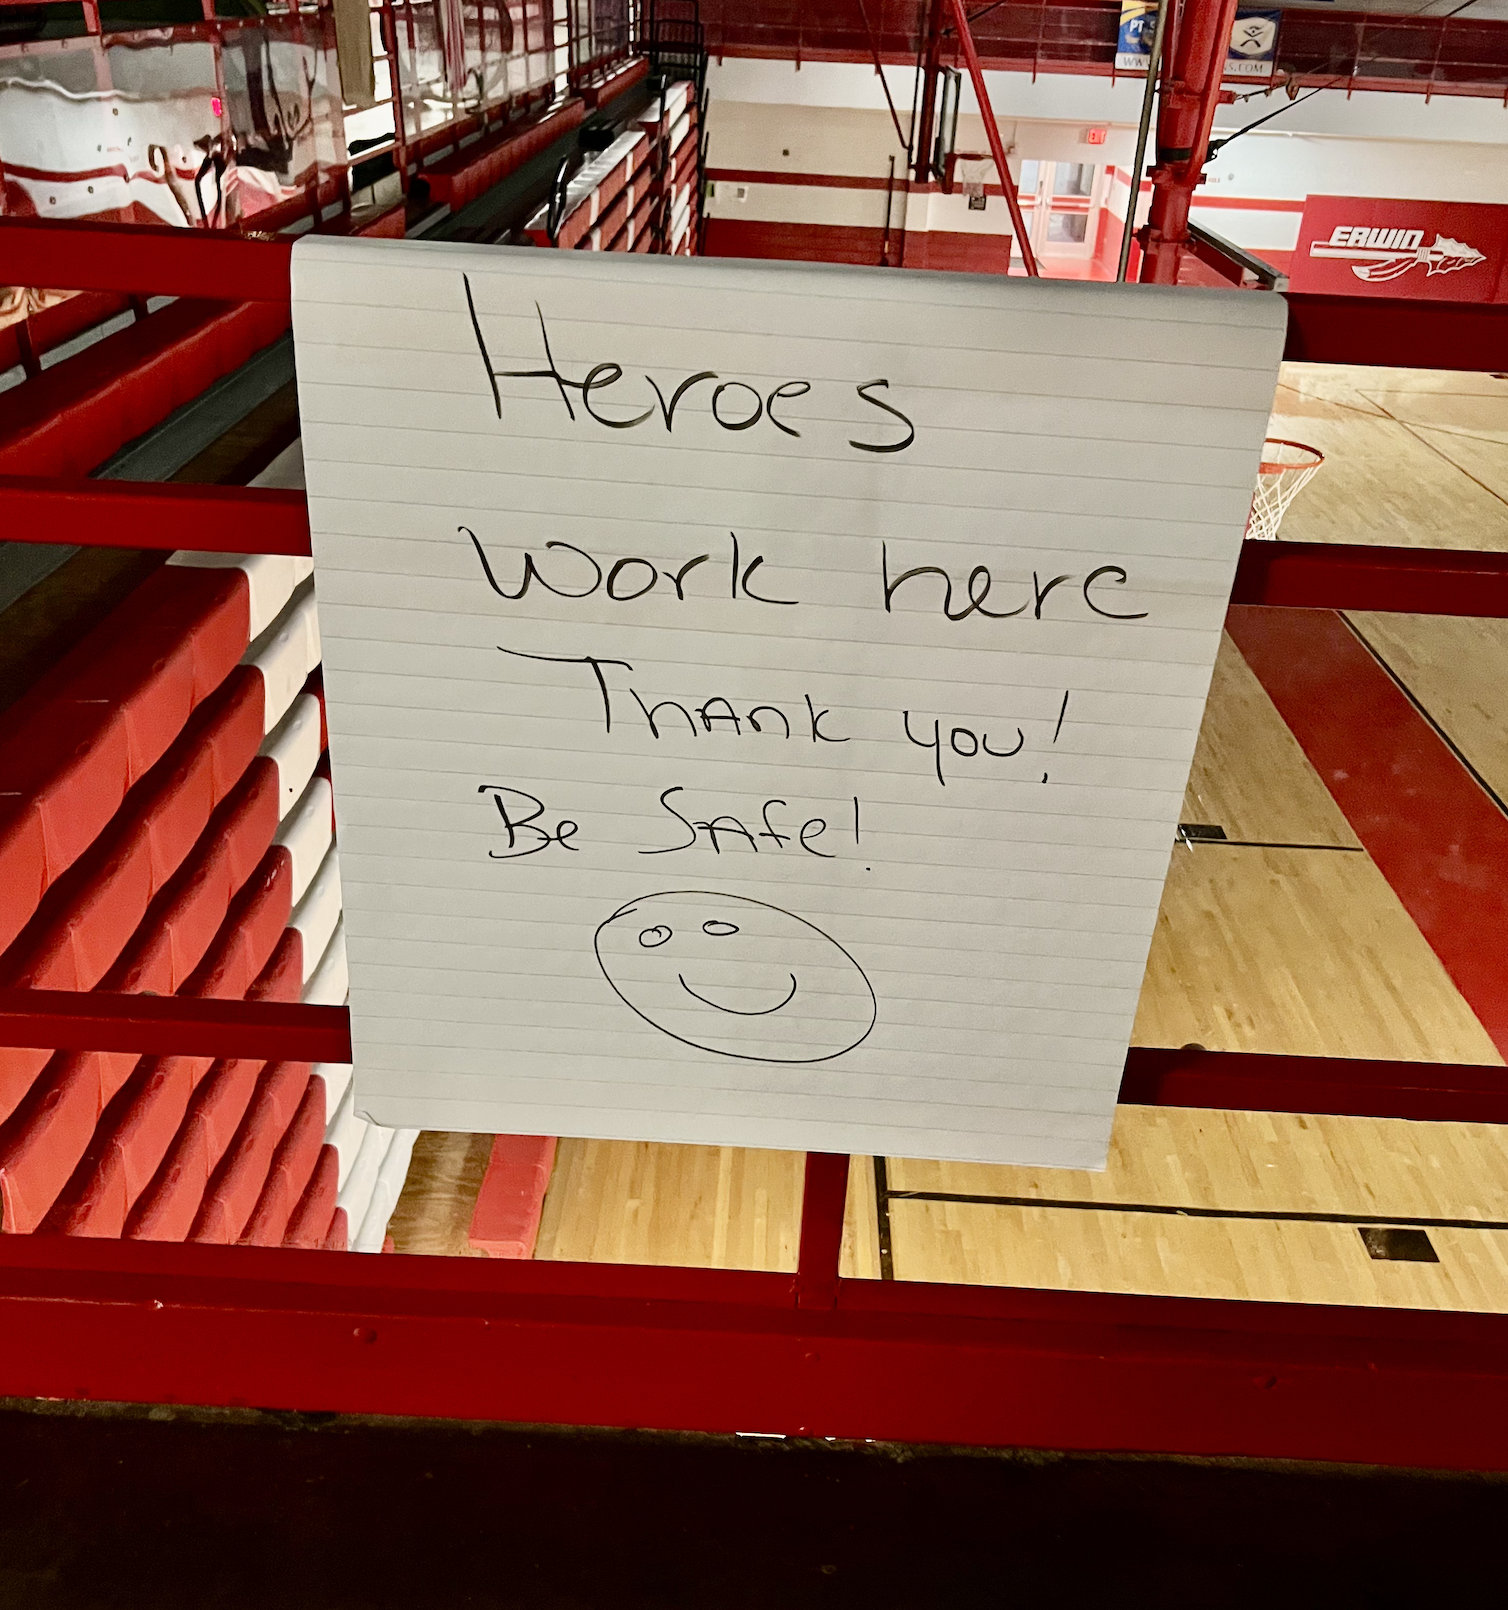 PT
ERWIN
Heroes
Work here
Thank you!
Be Safe!